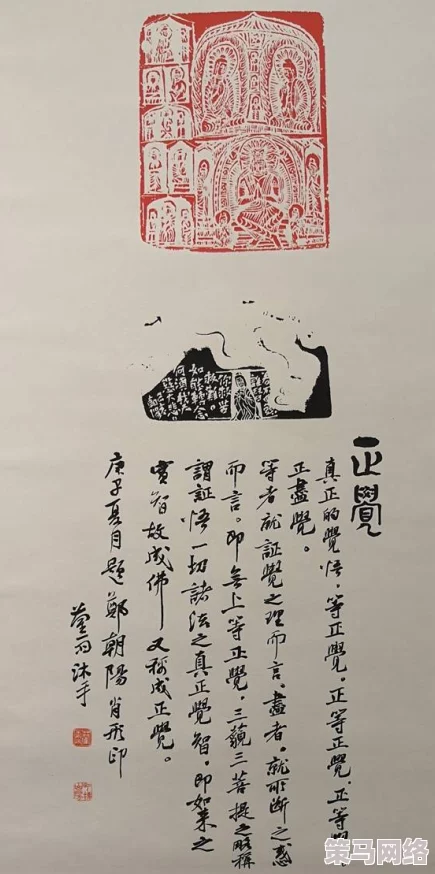 正覺
真正的覺悟,等正覺。正等正覺,正等覺
正盡覺。
等者就証覺之理而言。盡者,就所断之惑
而言。即無上等正覺,三藐三菩提之略稱
謂証悟一切諸法之真正覺智,即如来之
實智故成佛又称成正覺。
庚子夏月題鄭朝陽肖形印
雨沐手
策马网络